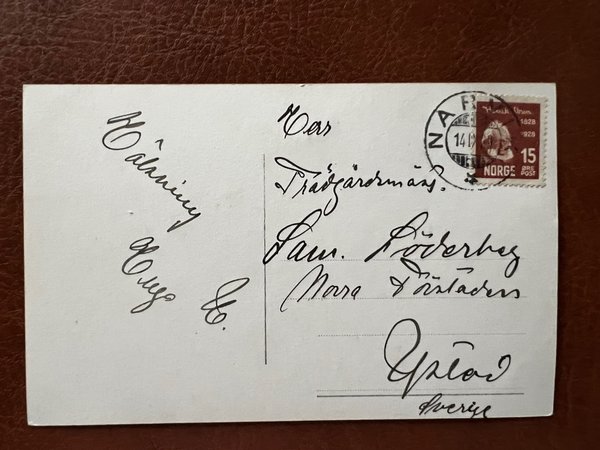 Hälsning
Hugo H.
Herr
Trädgårdsmäst.
Sam. Söderberg
Norra Förstaden
Ystad
Sverige
NARVI
14
1828
1928
15
NORGE
ØRE
POST